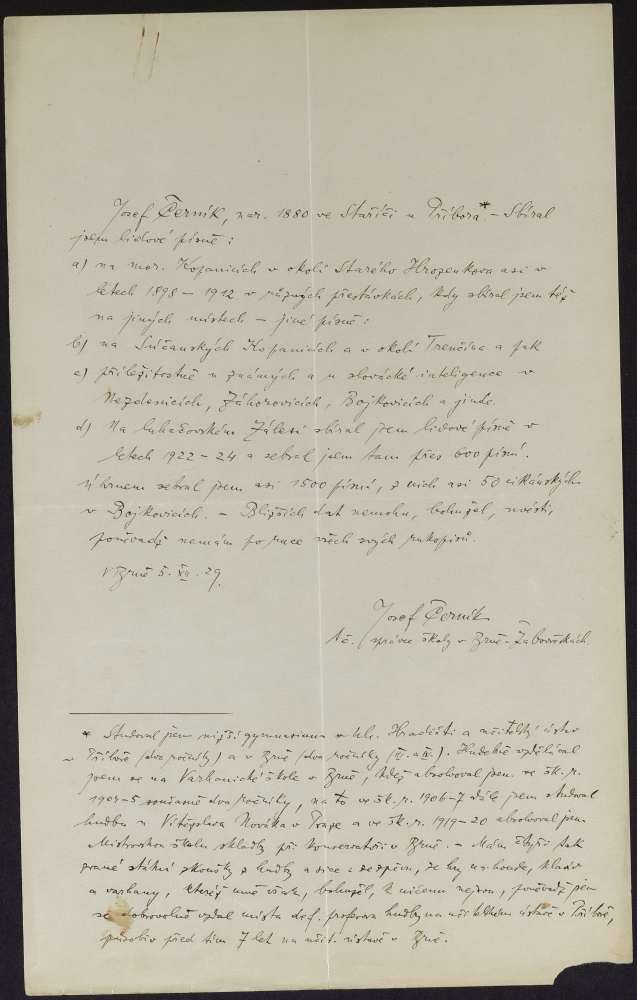 Josef Černík, nar. 1880 ve Staříči u Příbora.* – Sbíral
jsem lidové písně:
a) na mor. Kopanicích v okolí Starého Hrozenkova asi v
letech 1898 – 1912 v různých přestávkách, kdy sbíral jsem též
na jiných místech – jiné písně:
b) na Súčanských Kopanicích a v okolí Trenčína a pak
c) příležitostně u známých a u slovácké inteligence v
Nezdenicích, Záhorovicích, Bojkovicích a jinde.
d) Na luhačovském Zálesí sbíral jsem lidové písně v
letech 1922 – 24 a sebral jsem tam přes 600 písní.
Úhrnem sebral jsem asi 1500 písní, z nich asi 50 cikánských
v Bojkovicích. – Bližších dat nemohu, bohužel, uvésti,
poněvadž nemám po ruce všech svých rukopisů.
V Brně 5. XII. 29.
Josef Černík
tč. správce školy v Brně-Žabovřeskách.
* Studoval jsem nižší gymnasium v Uh. Hradišti a učitelský ústav
v Příboře (dva ročníky) a v Brně (dva ročníky (III. a IV.). Hudebně vzdělával
jsem se na Varhanické škole v Brně, kdež absolvoval jsem ve šk. r.
1904–5 současně dva ročníky, na to ve šk. r. 1906–7 dále jsem studoval
hudbu u Vítězslava Nováka v Praze a ve šk. r. 1919–20 absolvoval jsem
Mistrovskou školu skladby při konservatoři v Brně. – Mám čtyři tak
zvané státní zkoušky z hudby a sice: ze zpěvu, ze hry na housle, klavír
a varhany, kteréž mně však, bohužel, k ničemu nejsou, poněvadž jsem
se dobrovolně vzdal místa def. profesora hudby na učitelském ústavě v Příboře,
působiv před tím 7 let na učit. ústavě v Brně.